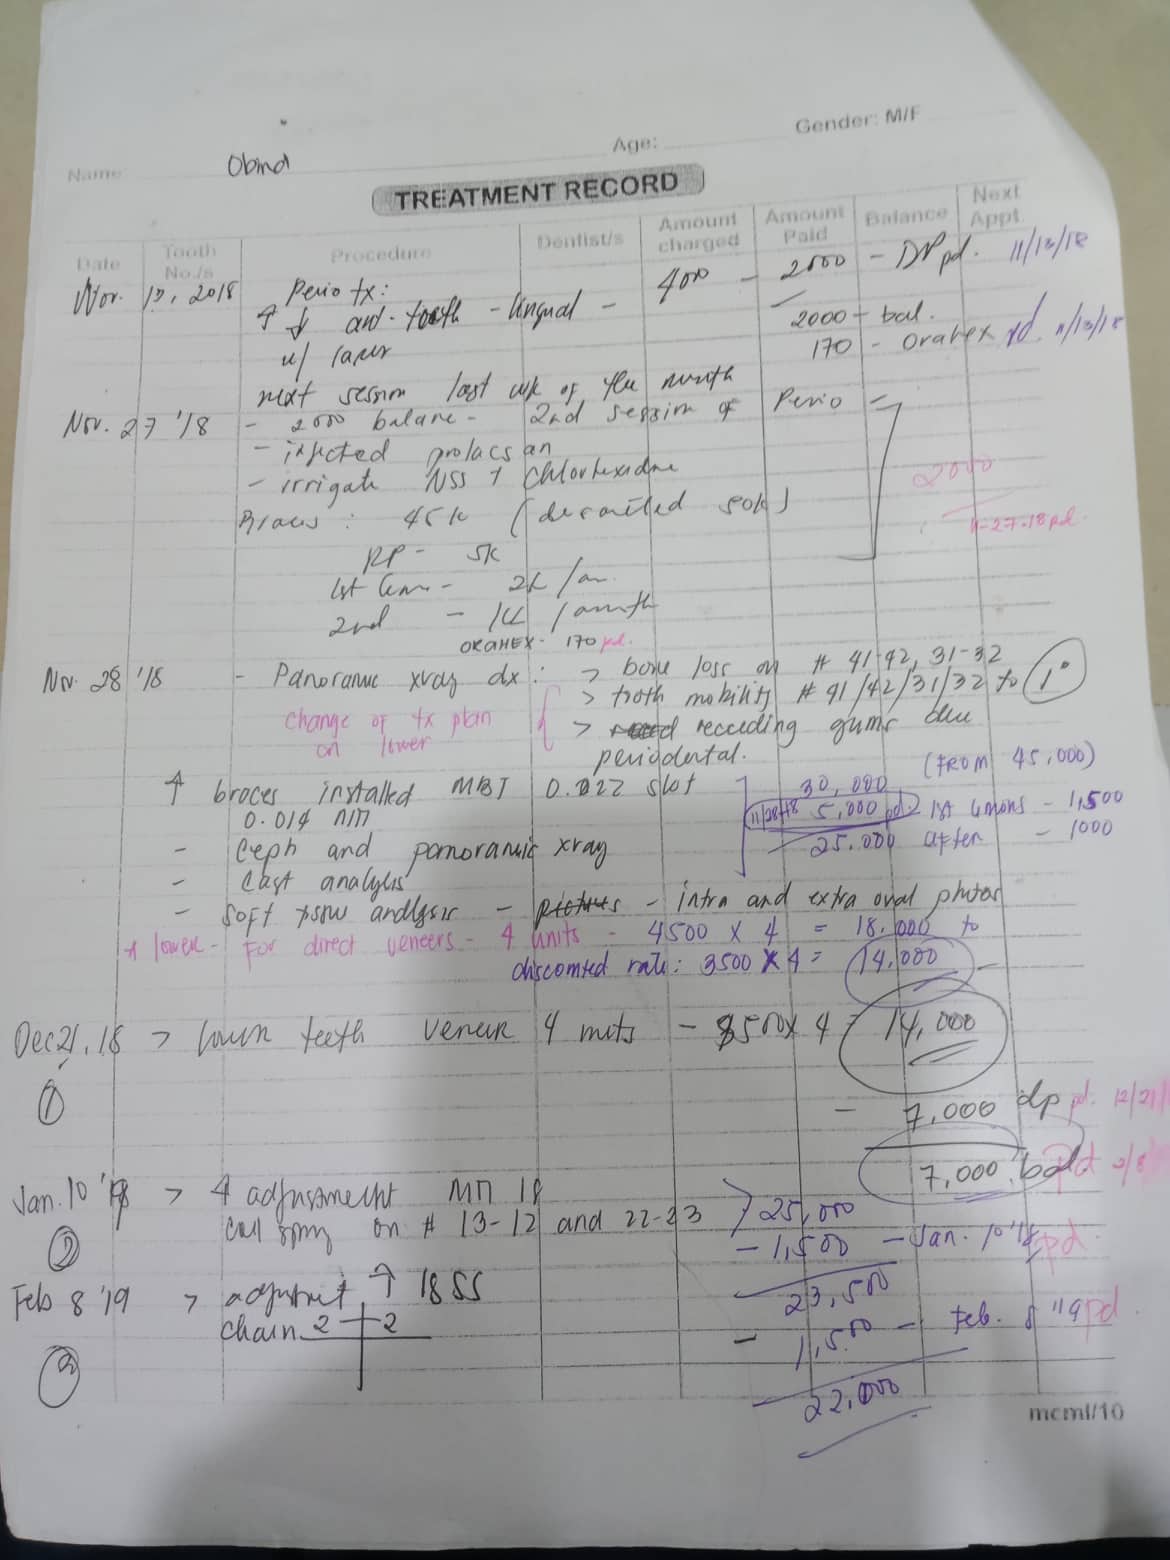 Name Obind Age: Gender: M/F
TREATMENT RECORD
Date Tooth No./s Procedure Dentist/s Amount charged Amount Paid Balance Next Appt.
Nov. 13, 2018 Perio tx: 4000 - 2000 - DP pd. 11/13/18
↑ ↓ ant. tooth - lingual - 2000 - bal.
w/ laser 170 - Orahex pd. 11/13/18
next session last wk of the month
Nov. 27 '18 - 2000 balane - 2nd session of Perio -
- injected
- irrigate NSS + Chlorhexidne 2000
Braces: 45k ( 50k) 11-27-18 pd.
RP - 5k
1st - 2k /m.
2nd - 1k /month
ORAHEX - 170 pd.
Nov. 28 '18 - Panoramic xray dx: > bone loss on # 41-42, 31-32
> tooth mobility # 41/42/31/32 to 1°
change of tx plan on lower > receeding gums due
periodontal.
(FROM 45,000)
↑ braces installed MBT 0.022 slot 30,000
0.014 11/28/18 5,000 pd. 1st 6mons - 1,500
- Ceph and panoramic xray 25,000 after - 1000
- Cast analysis
- Soft analysis - - intra and extra oral photos
* lower - For direct veneers - 4 units - 4500 x 4 = 18,000 to
discounted rate: 3500 x 4 = 14,000 -
Dec 21, 18 > lower teeth veneer 4 units - 3500 x 4 = 14,000
① - 7,000 dp pd. 12/21/1
7,000 bal pd 2/8
Jan. 10 > ↑ adjustment 25,000
② coil spring on # 13-12 and 22-23 - 1,500 - Jan. 10 '18 pd.
Feb 8 '19 > adjustmt ↑ 18 SS 23,500
chain 2 2 - 1,500 - Feb. 8 '19 pd.
③ 22,000
mcml/10